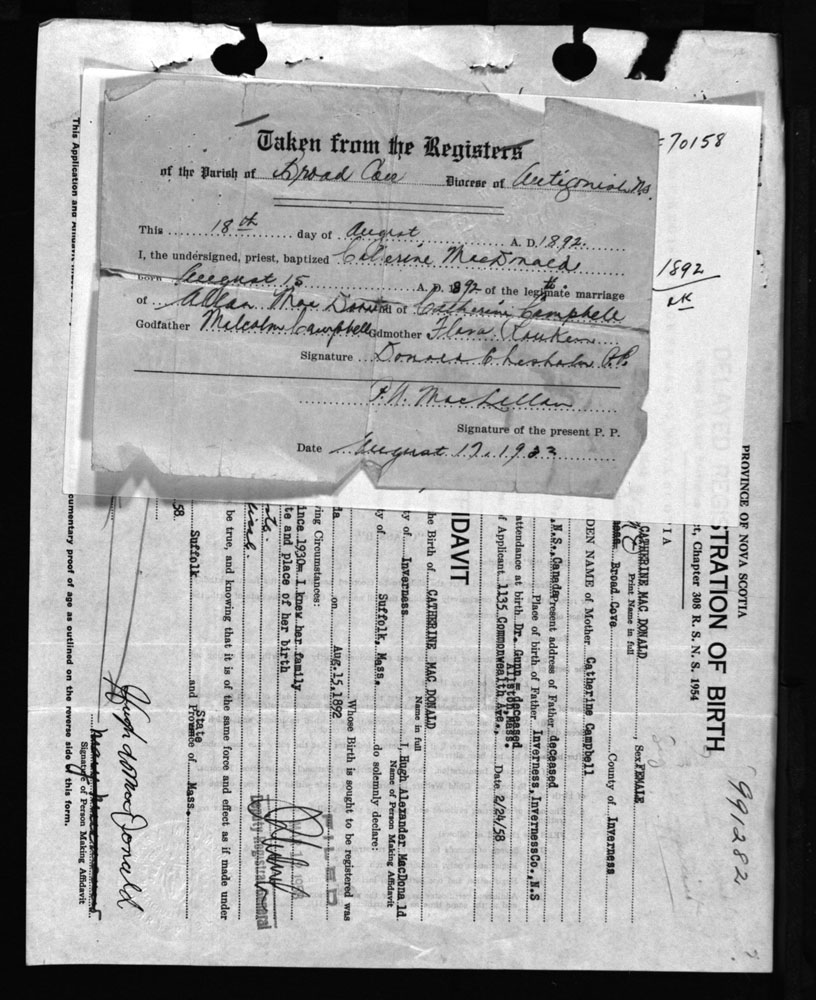 Taken from the Registers
of the Parish of Broad Cove Diocese of Antigonish N.S.
This 18th day of August A. D. 1892.
I, the undersigned, priest, baptized Catherine MacDonald
born August 15 A. D. 1892 of the legitimate marriage
of Allan Mac Donald and of Catherine Campbell
Godfather Malcolm Campbell Godmother Flora
Signature Donald Chisholm P.P.
P. N. MacLellan
Signature of the present P. P.
Date August 17, 1933
70158
1892
PROVINCE OF NOVA SCOTIA
STRATION OF BIRTH
t, Chapter 308 R. S. N. S. 1954
991282
CATHERINE MAC DONALD, Sex FEMALE
Print Name in full
Broad Cove County of Inverness
DEN NAME of Mother Catherine Campbell
N.S., Canada Present address of Father deceased
Place of birth of Father Inverness, Inverness Co., N.S
attendance at birth Dr. Gunn - deceased
Allston, Mass.
f Applicant 1135 Commonwealth Ave., Date 2/24/58
IDAVIT
he Birth of CATHERINE MAC DONALD
Name in full
ty of Inverness I, Hugh Alexander MacDonald
Name of Person Making Affidavit
ty of Suffolk, Mass. do solemnly declare:
Whose Birth is sought to be registered was
da on Aug. 15, 1892
ing Circumstances:
ince 1930m I knew her family
te and place of her birth
FILED
Deputy Registrar General
be true, and knowing that it is of the same force and effect as if made under
58. Suffolk and State Province of Mass.
Hugh A MacDonald
Signature of Person Making Affidavit
cumentary proof of age as outlined on the reverse side of this form.
This Application and Affidavit must